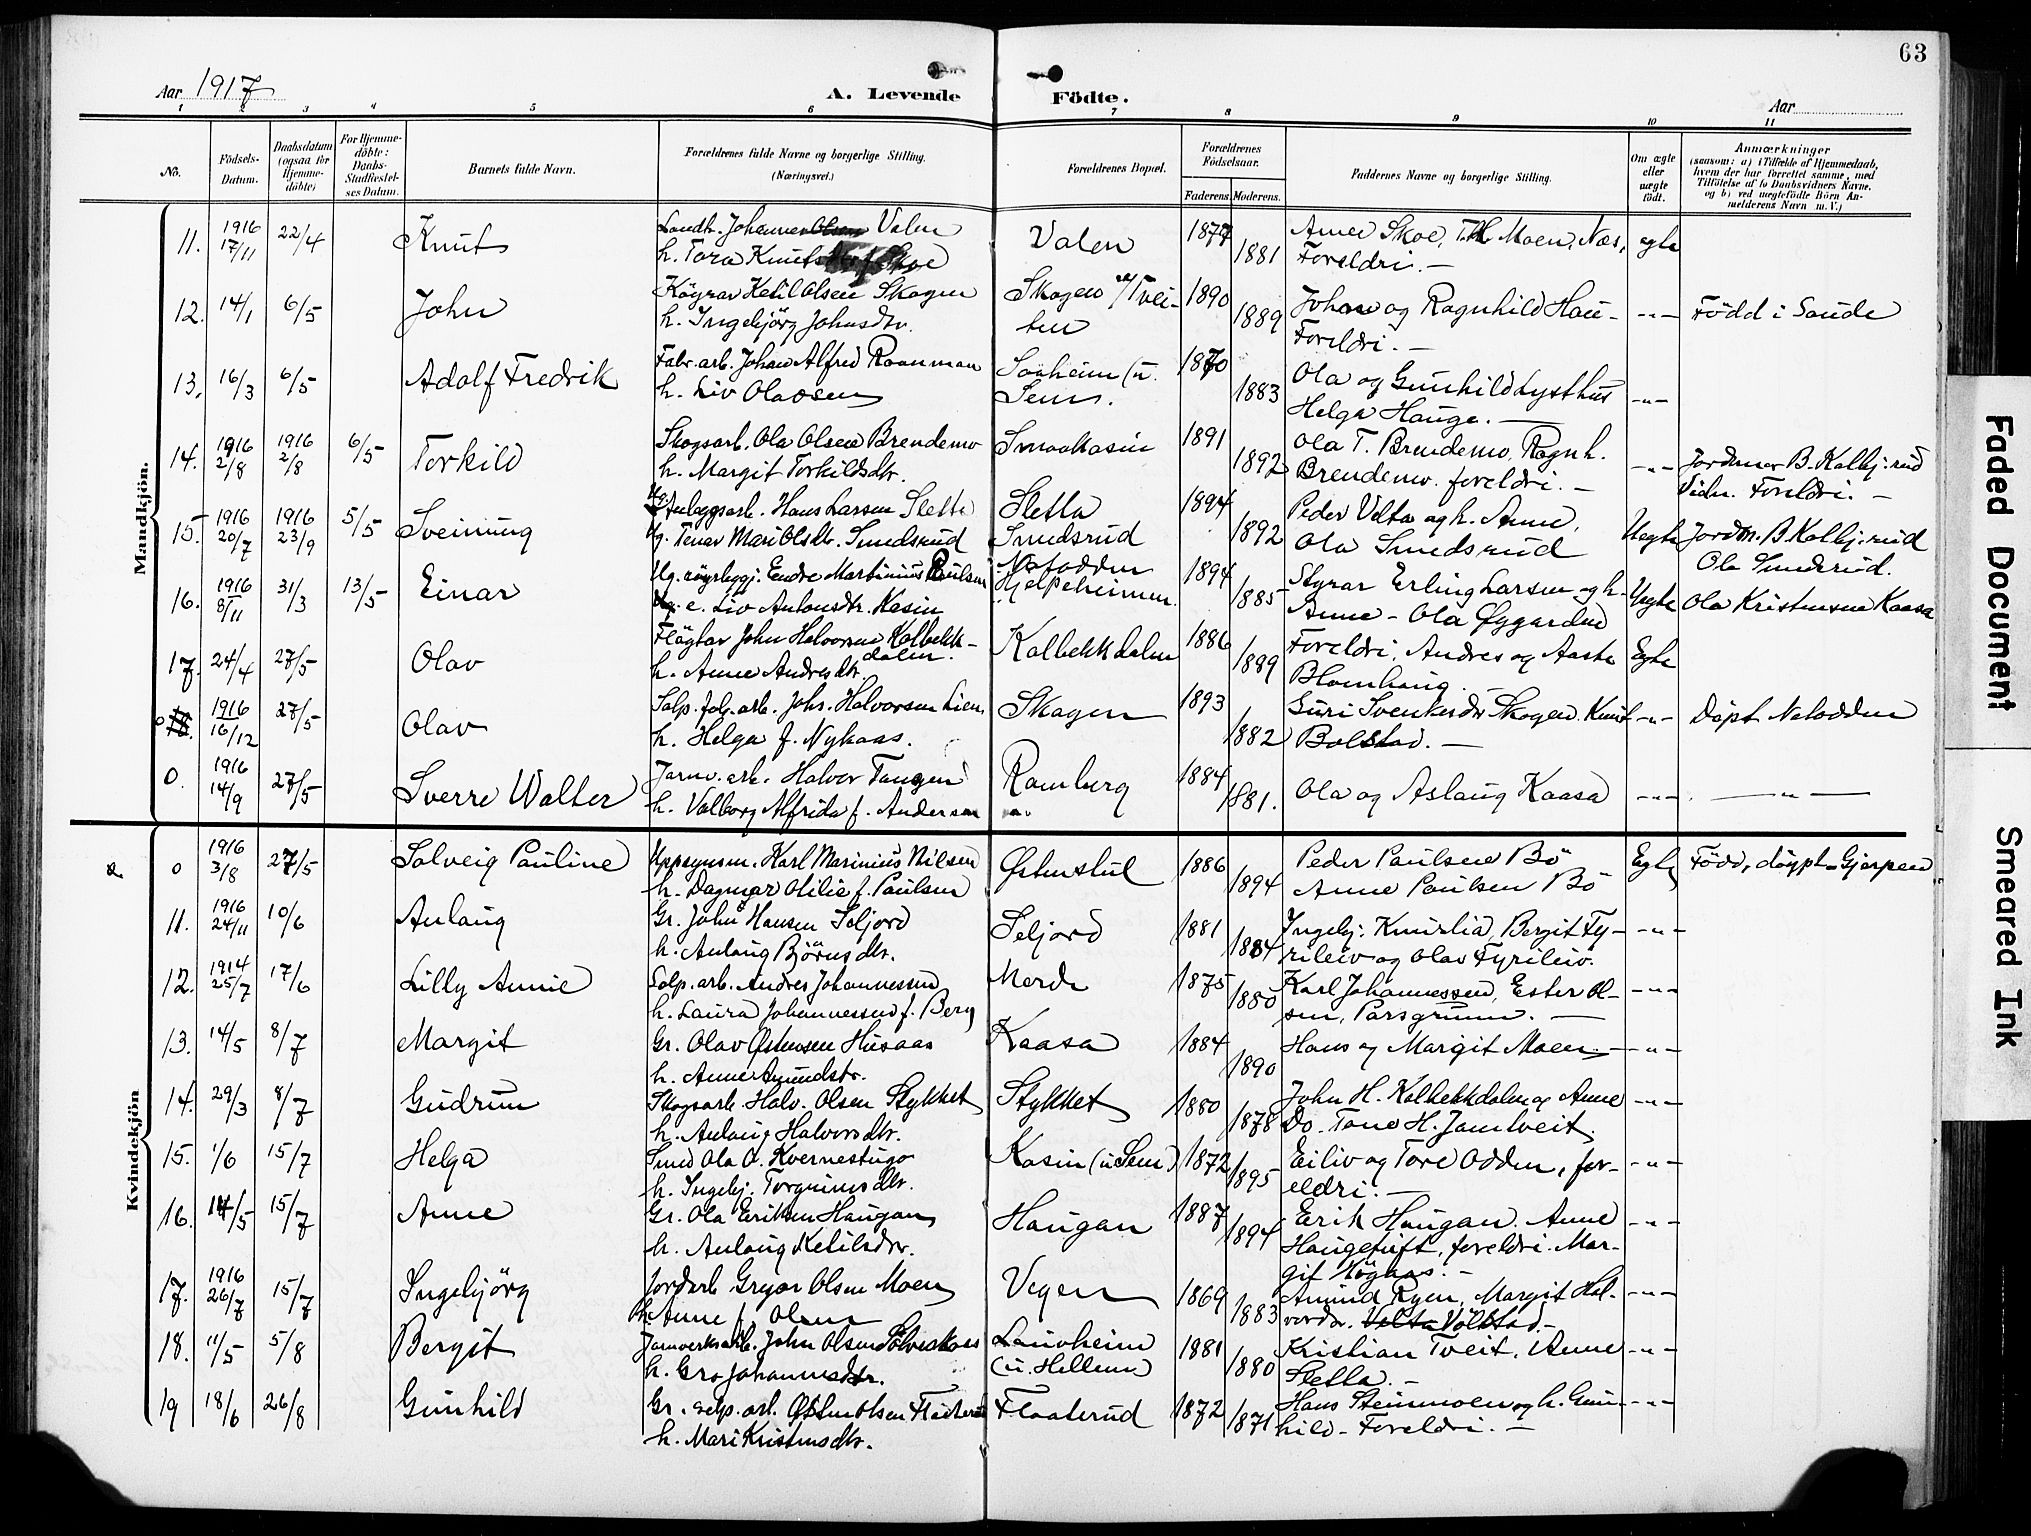 63
Aar 1917
A. Levende Födte.
Aar
1 2 3 4 5 6 7 8 9 10 11
No.
Födsels-Datum.
Daabsdatum (ogsaa for Hjemmedöbte)
For Hjemmedöbte: Daabs-Stadfæstelses Datum.
Barnets fulde Navn.
Forældrenes fulde Navne og borgerlige Stilling. (Næringsvei.)
Forældrenes Bopæl.
Forældrenes Födselsaar.
Faderens. Moderens.
Faddernes Navne og borgerlige Stilling.
Om ægte eller uægte födt.
Anmærkninger
(saasom: a) i Tilfælde af Hjemmedaab, hvem der har forrettet samme, med Tilföielse af to Daabsvidners Navne, og b) ved uægtefödte Börn Anmelderens Navn m. V.)
Mandkjön.
11. 1916 17/11 22/4 Knut
Landh. Johannes Valen
h. Tora Knutsdtr f. Skoe
Valen 1877 1881
Anne Skoe, T.H. Moen, Næs,
Foreldri. — egte
12. 14/1 6/5 John
Köyrar Ketil Olsen Skogen
h. Ingebjörg Johnsdtr.
Skogen u/Tveiten 1890 1889
Johan og Ragnhild Hau-
Foreldri. — -"- Född i Saude
13. 16/3 6/5 Adolf Fredrik
Fabr.arb. Johan Alfred Raanman
h. Liv Olavsen
Saaheim (u. Sem. 1870 1883
Ola og Gunhild Lysthus
Helga Hauge. — -"-
14. 1916 2/8 1916 2/8 6/5 Torkild
Skogsarb. Ola Olsen Brendemo
h. Margit Torkildsdtr.
Smaakasin 1891 1892
Ola T. Brendemo, Ragnh.
Brendemo. foreldri. — -"-
Jordmor B. Kolbj.rud
Vidn. Foreldri. —
15. 1916 20/7 1916 23/9 5/5 Sveinung
Ug. Anleggsarb. Hans Larsen Sletta
Ug. Tenar Mari Olsdtr. Smedsrud
Sletta
Smedsrud 1894 1892
Peder Velta og h. Anne,
Ola Smedsrud Uegte
Jordm. B. Kolbj.rud
Ola Smedsrud.
16. 1916 8/11 31/3 13/5 Einar
Ug. röyrleggj. Endre Martinius Paulsen
e. Liv Antonsdtr. Kasin
Notodden
Hjelpeheimen. 1894 1885
Styrar Erling Larsen og h.
Anne - Ola Øygarden Uegte Ola Kristensen Kaasa
17. 24/4 27/5 Olav
Flögtar John Halvorsen Kolbekk-
dalen.
h. Anne Andresdtr.
Kolbekkdalen 1886 1889
Foreldri, Andres og Aaste
Blomhaug. — Egte
0 1916 16/12 27/5 Olav
Salp. fab. arb. Johs. Halvorsen Lien
h. Helga f. Nykaas.
Skogen 1893 1882
Guri Svenkesdtr Skogen. Knut
Bolstad. — -"- Döpt Notodden
0. 1916 14/9 27/5 Sverre Walter
Jarnv. arb. Halvor Tangen
h. Valborg Alfrida f. Andersen
Ramberg 1884 1881.
Ola og Aslaug Kaasa -"- — " —
Kvindekjön
0 1916 3/8 27/5 Solveig Pauline
Uppsynsm. Karl Marinius Nilsen
h. Dagmar Otilie f. Paulsen
Østenstul 1886 1894
Peder Paulsen Bö
Anne Paulsen Bö Egte Född, döypt - Gjerpen
11. 1916 24/11 10/6 Anlaug
Gr. John Hansen Seljord
h. Anlaug Björnsdtr.
Seljord 1881 1884
Ingebj. Knurlia, Bergit Ty-
rileiv og Olav Tyrileiv. -"-
12. 1914 25/7 17/6 Lilly Annie
Salp. arb. Andres Johannessen
h. Laura Johannessen f. Berg
Merde 1875 1880
Karl Johannessen, Ester Ol-
sen, Porsgrunn. — -"-
13. 14/5 8/7 Margit
Gr. Olav Østensen Husaas
h. Anne Amundsdtr.
Kaasa 1884 1890
Hans og Margit Moen. — -"-
14. 29/3 8/7 Gudrun
Skogsarb. Halv. Olsen Stykket
h. Anlaug Halvorsdtr.
Stykket 1880 1878
John H. Kolbekkdalen og Anne
Do. Tone H. Jamtveit. -"-
15. 1/6 15/7 Helga
Smed Ola O. Kvernestugo
h. Ingebj. Torgrimsdtr.
Kasin (u Sem) 1872 1895
Eiliv og Tore Odden, for-
eldri. — -"-
16. 14/5 15/7 Anne
Gr. Ola Eriksen Haugan
h. Anlaug Ketilsdtr.
Haugan 1887 1894
Eerik Haugan. Anne
Haugetuft, foreldri. Mar-
git Högaas. — -"-
17. 1916 26/7 15/7 Ingebjörg
Jordarb Gregar Olsen Moen
h. Anne f. Olsen
Vegen 1869 1883
Amund Ryen, Margit Hal-
vordtr. Volstad. — -"-
18. 11/5 5/8 Bergit
Jarnverksarb. John Olsen Sölveskaas
h. Gro Johannesdtr.
Lauvheim
(u. Hellem) 1881 1880
Kristian Tveit, Anne
Sletta. — -"-
19 18/6 26/8 Gunhild
Gr. salp. arb. Østen Olsen Flaaterud
h. Mari Kristensdtr.
Flaaterud 1872 1871
Hans Steinmoen og h. Gun-
hild - Foreldri. — -"-
Faded Document
Smeared Ink